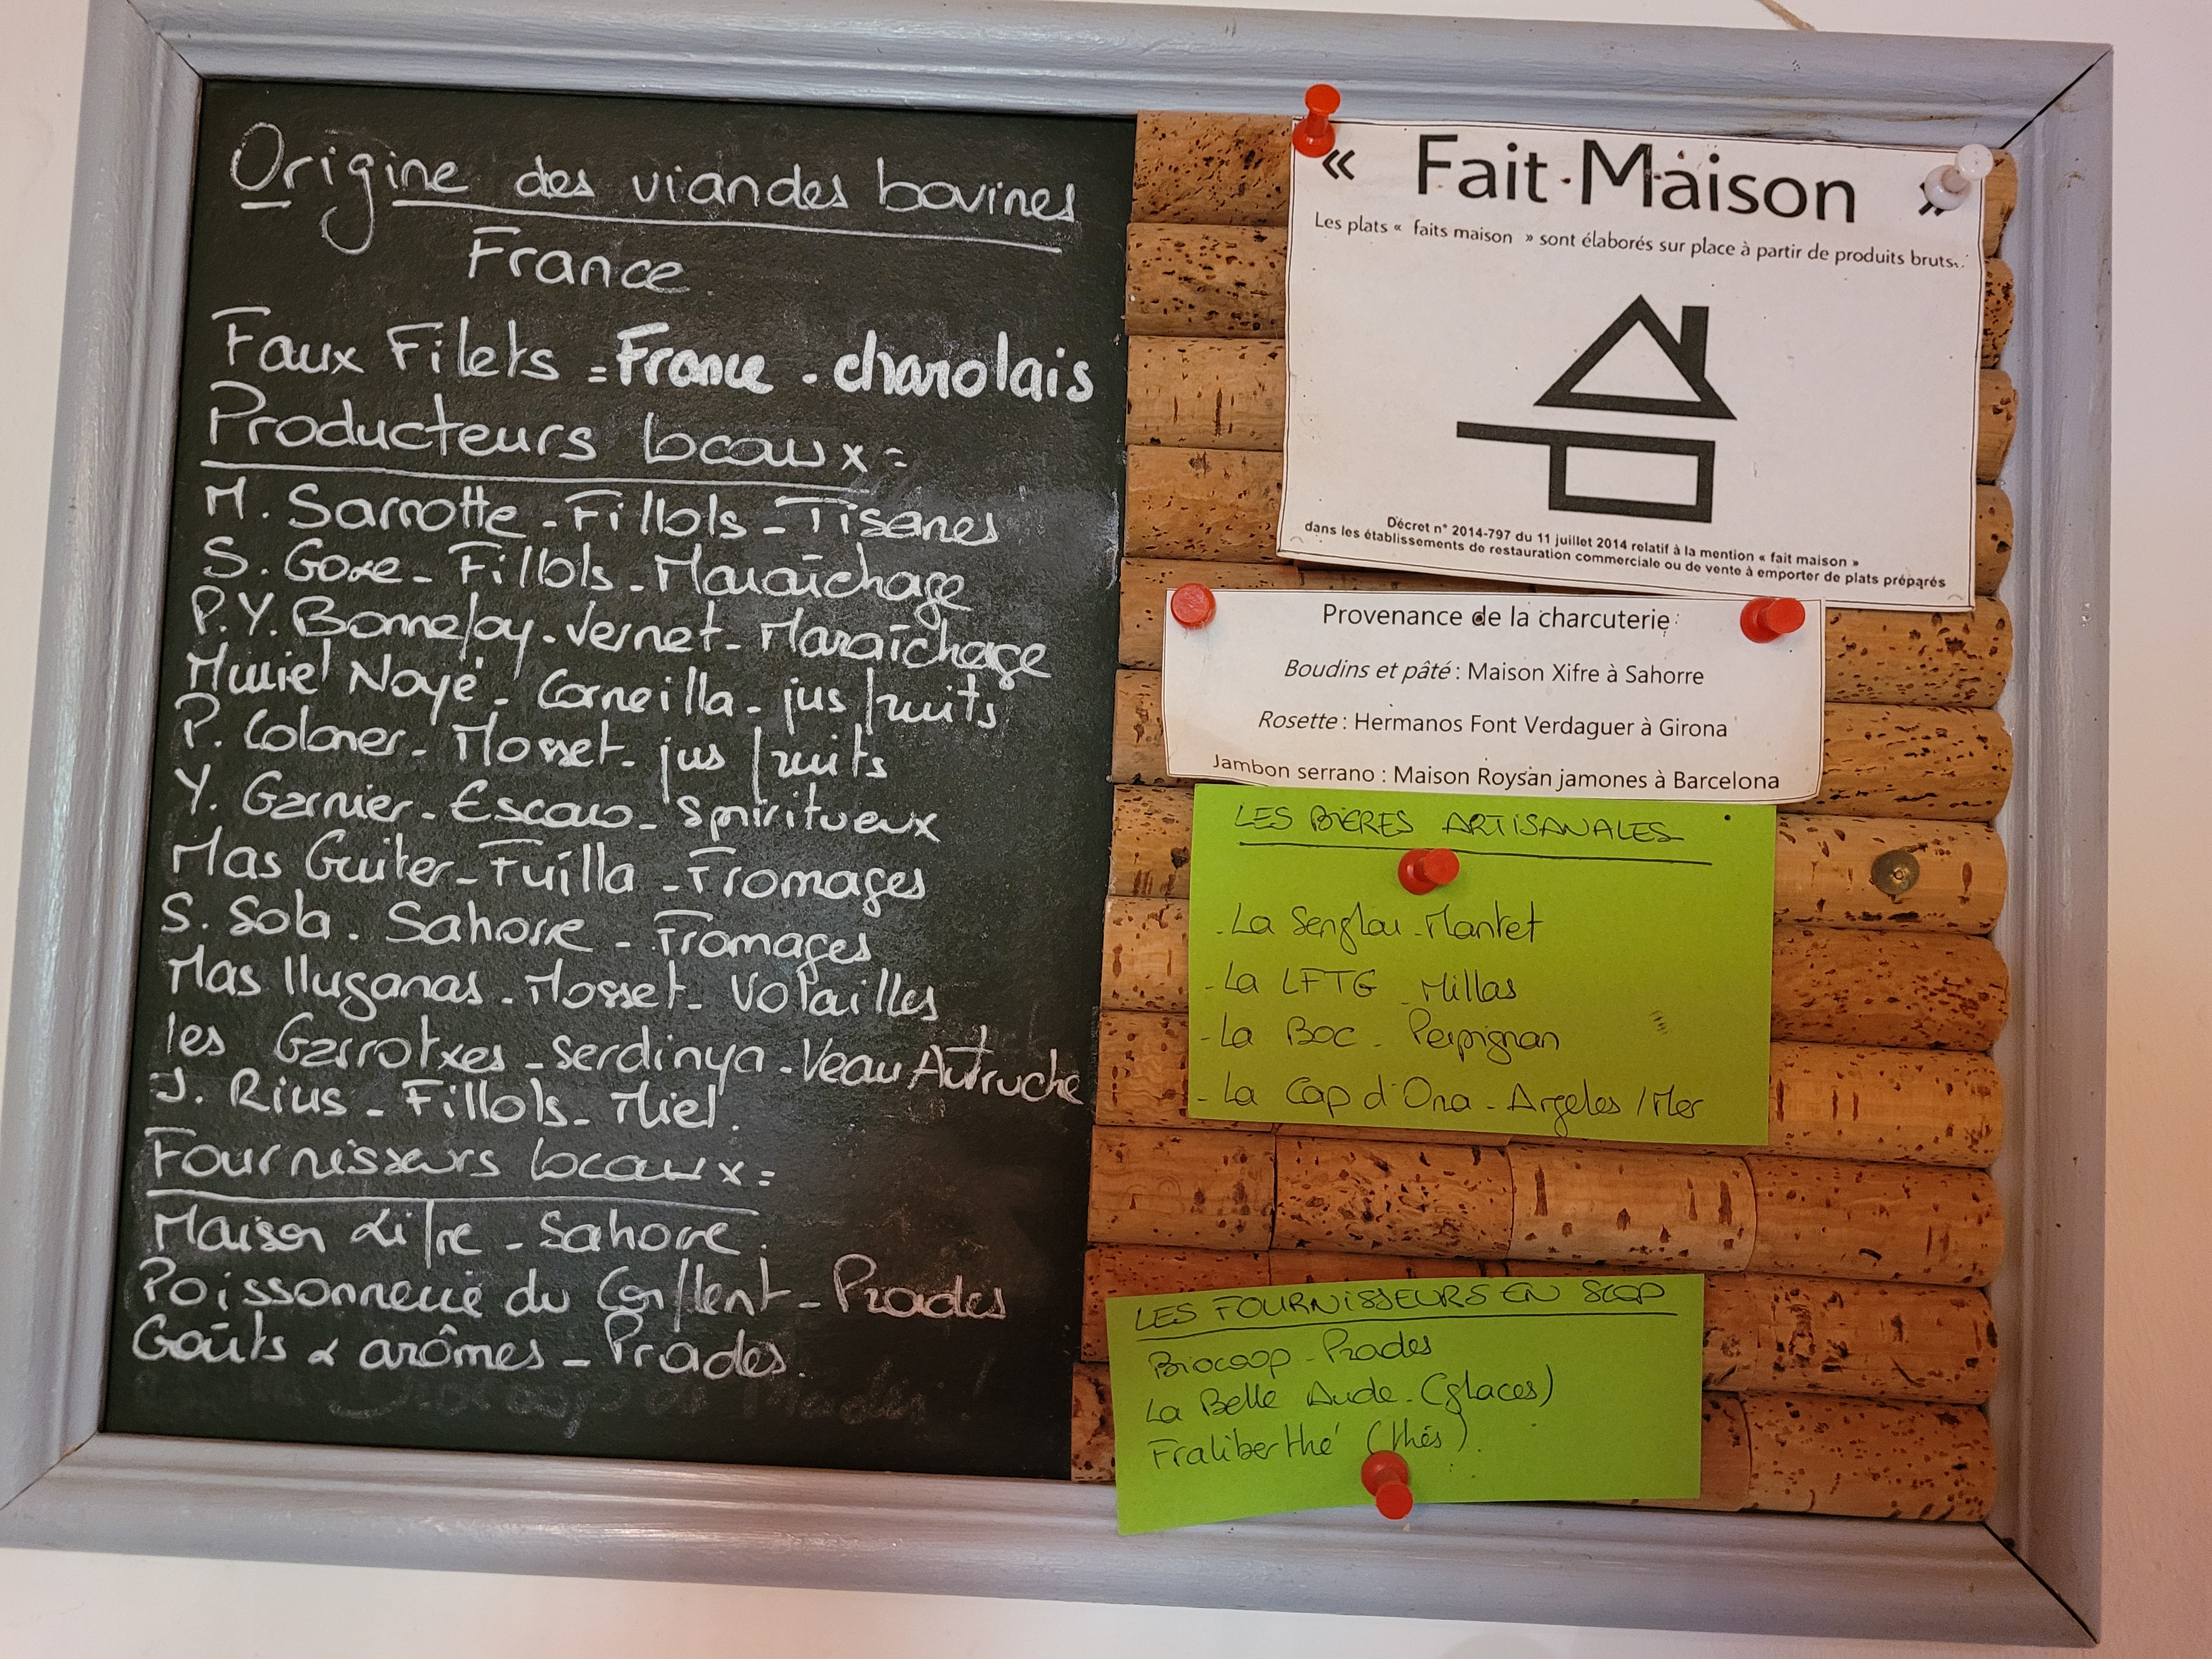 Origine des viandes bovines
France
Faux Filets = France - charolais
Producteurs locaux =
M. Sarrotte - Fillols - Tisanes
S. Goxe - Fillols - Maraîchage
P.Y. Bonnefoy - Vernet - Maraîchage
Muriel Noyé - Corneilla - jus fruits
P. Colomer - Mosset - jus fruits
Y. Garnier - Escaro - Spiritueux
Mas Guiter - Fuilla - Fromages
S. Sola - Sahorre - Fromages
Mas lluganas - Mosset - Volailles
les Garrotxes - Serdinya - Veau Autruche
J. Rius - Fillols - Miel.
Fournisseurs locaux =
Maison Xifre - Sahorre.
Poissonnerie du Conflent - Prades
Goûts & arômes - Prades.
« Fait Maison »
Les plats « faits maison » sont élaborés sur place à partir de produits bruts.
Décret n° 2014-797 du 11 juillet 2014 relatif à la mention « fait maison »
dans les établissements de restauration commerciale ou de vente à emporter de plats préparés
Provenance de la charcuterie:
Boudins et pâté : Maison Xifre à Sahorre
Rosette : Hermanos Font Verdaguer à Girona
Jambon serrano : Maison Roysan jamones à Barcelona
LES BIERES ARTISANALES
- La Senglar - Mantet
- La LFTG - Millas
- La Boc - Perpignan
- La Cap d'Ona - Argeles / Mer
LES FOURNISSEURS EN SCOP
Biocoop - Prades
La Belle Aude - (glaces)
Fraliberthé (thés).